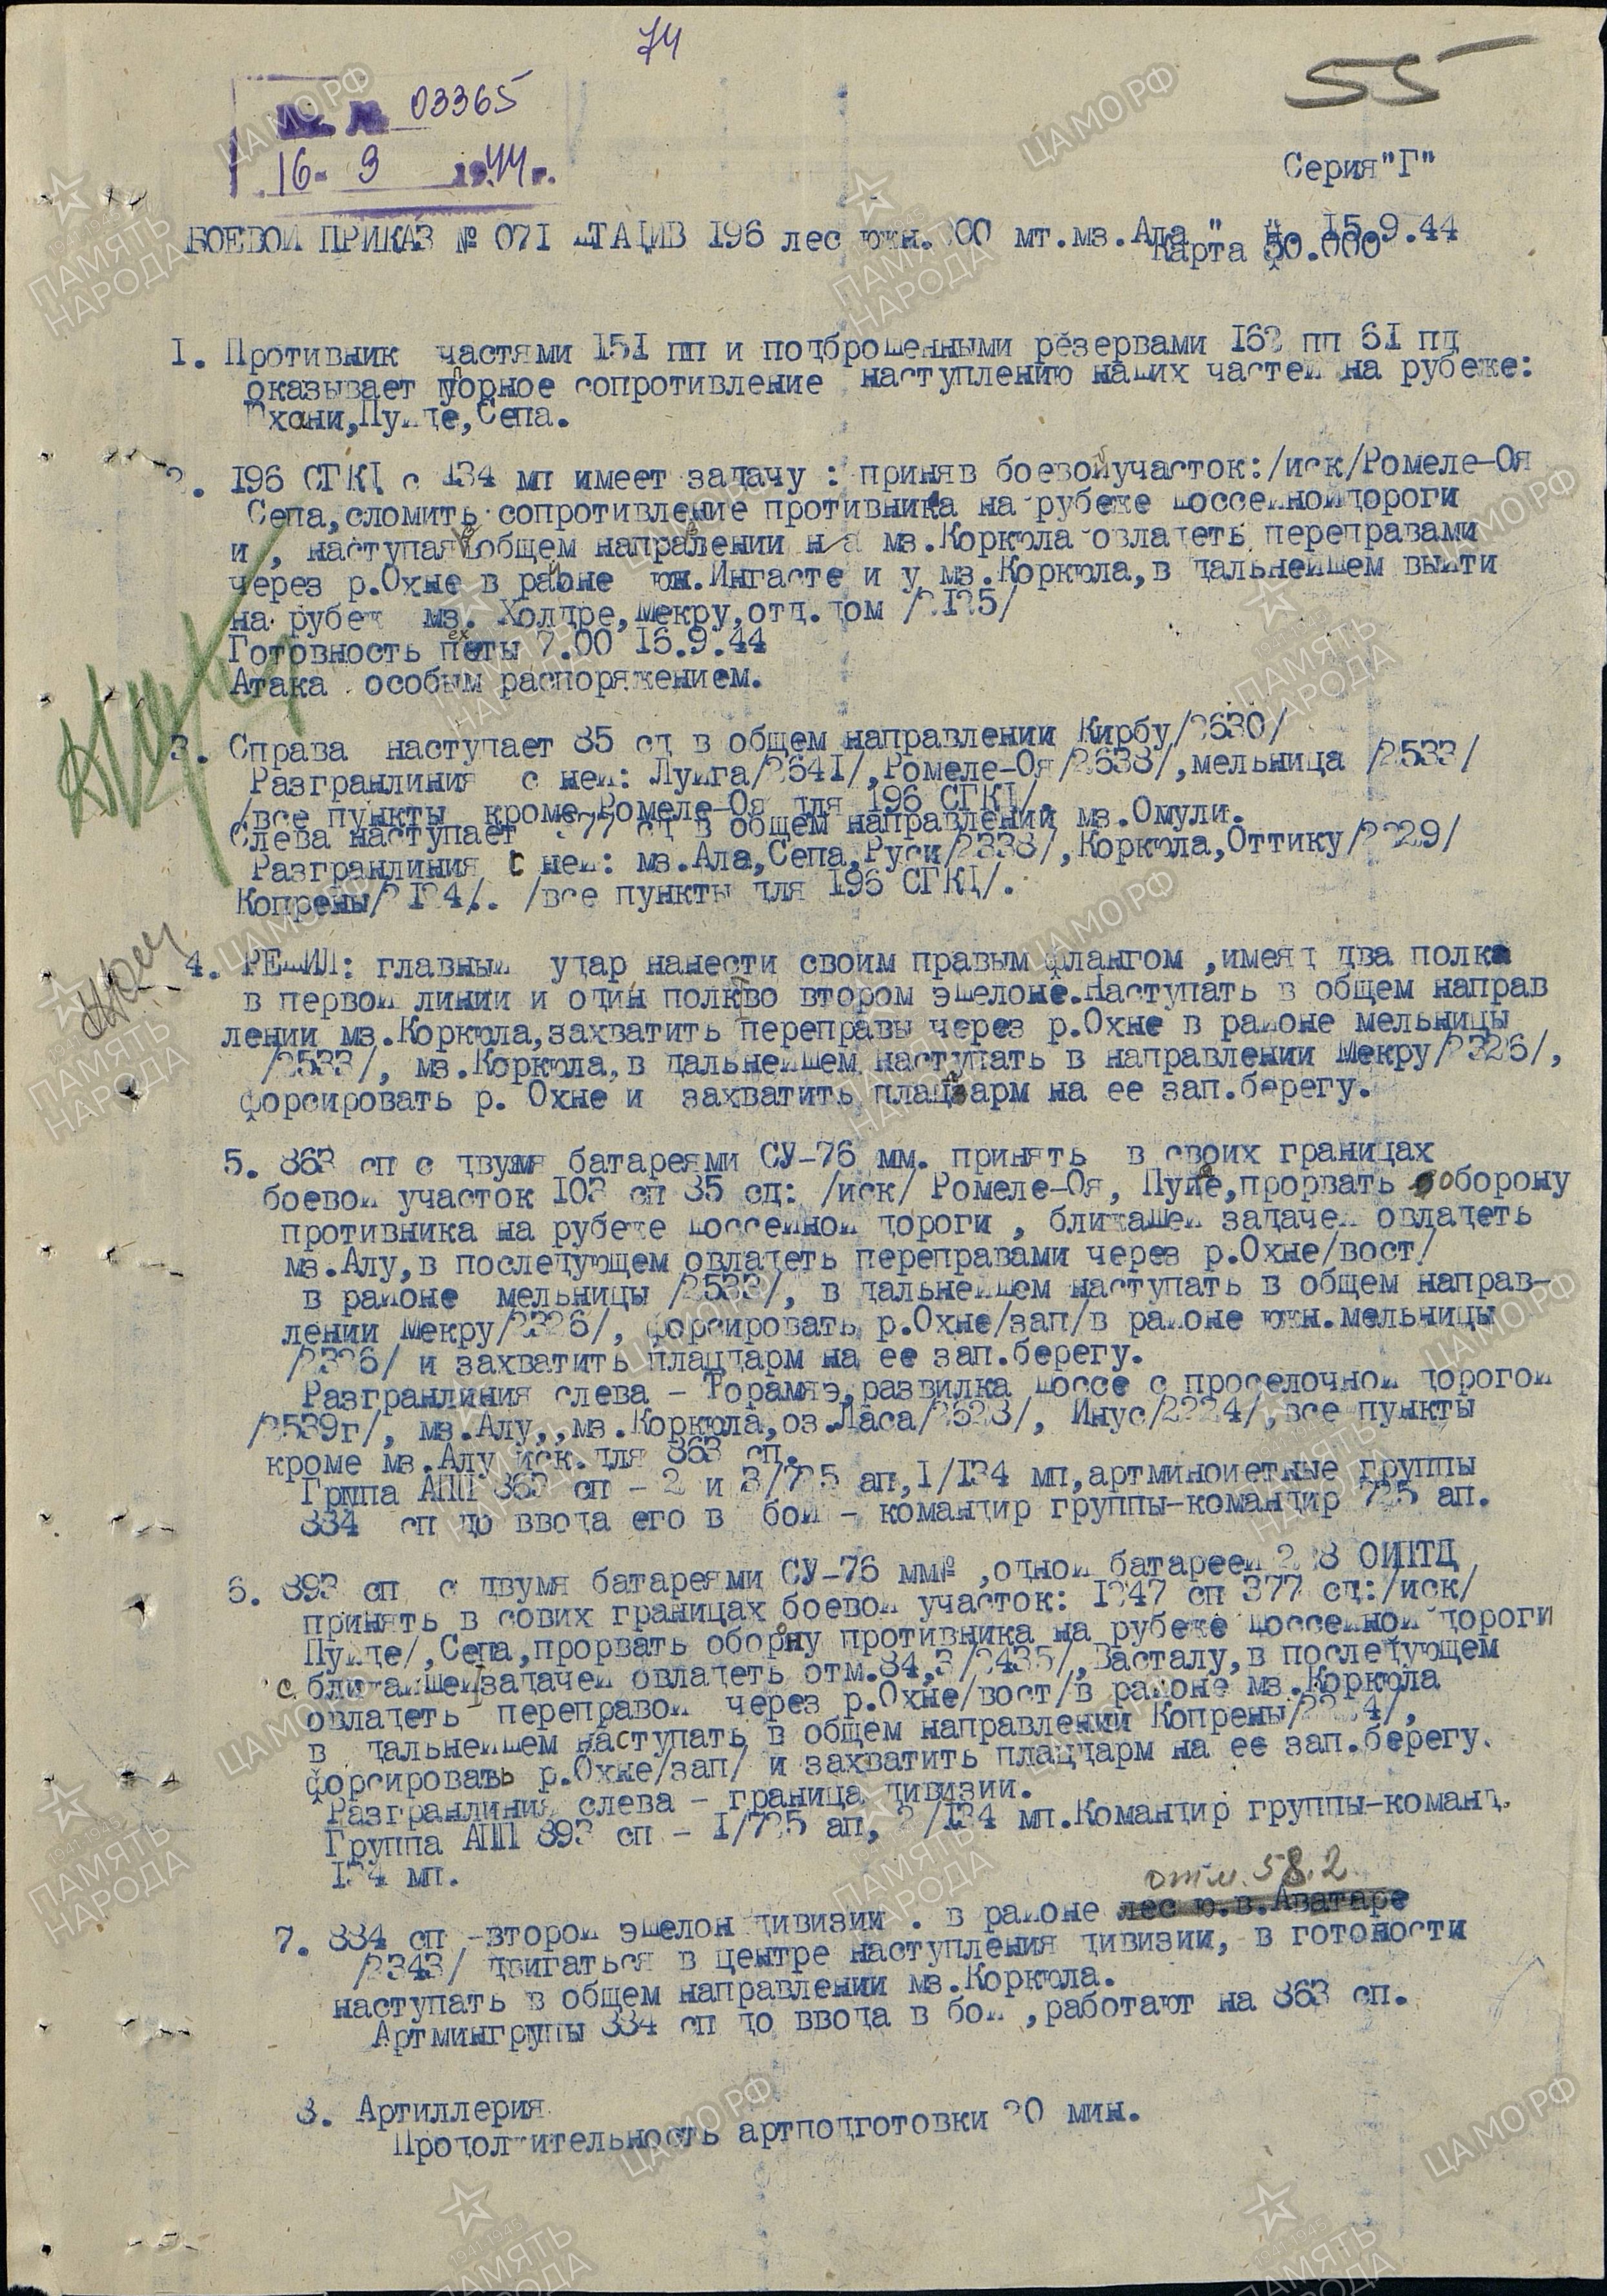 74
55
03365
16 - 9 1944 г.
Серия "Г"
БОЕВОЙ ПРИКАЗ № 071 ШТАДИВ 196 лес южн. 00 мт.мз.Ала 15.9.44
Карта 50.000
1. Противник частями 151 пп и подброшенными резервами 162 пп 61 пд
оказывает упорное сопротивление наступлению наших частей на рубеже:
Пуйде, Сепа.
2. 196 СГКД с 134 мп имеет задачу : приняв боевой участок:/иск/Ромеле-Оя
Сепа, сломить сопротивление противника на рубеже шоссейной дороги
и , наступая в общем направлении на мз.Коркюла овладеть переправами
через р.Охне в раоне юж.Ингасте и у мз.Коркюла, в дальнейшем выйти
на рубеж мз. Холдре, Мекру, отд.дом /2125/
Готовность пехоты 7.00 16.9.44
Атака особым распоряжением.
3. Справа наступает 85 сд в общем направлении Кирбу/2630/
Разгранлиния с ней: Луйга/2641/, Ромеле-Оя/2638/, мельница /2533/
/все пункты кроме Ромеле-Оя для 196 СГКД/.
Слева наступает 377 сд в общем направлении мз.Омули.
Разгранлиния с ней: мз.Ала, Сепа, Руси/2338/, Коркюла, Оттику/2229/
Копрены/2124/. /все пункты для 196 СГКД/.
4. РЕШИЛ: главный удар нанести своим правым флангом ,имея два полка
в первой линии и один полк во втором эшелоне. Наступать в общем направ
лении мз.Коркюла, захватить переправы через р.Охне в районе мельницы
/2533/, мз.Коркюла, в дальнейшем наступать в направлении Мекру/2326/,
форсировать р. Охне и захватить плацдарм на ее зап.берегу.
5. 863 сп с двумя батареями СУ-76 мм. принять в своих границах
боевой участок 103 сп 85 сд: /иск/ Ромеле-Оя, Пуйде, прорвать оборону
противника на рубеже шоссейной дороги , ближашей задачей овладеть
мз.Алу, в последующем овладеть переправами через р.Охне/вост/
в районе мельницы /2533/, в дальнейшем наступать в общем направ-
лении Мекру/2326/, форсировать р.Охне/зап/в районе южн.мельницы
/2326/ и захватить плацдарм на ее зап.берегу.
Разгранлиния слева - Торамяэ, развилка шоссе с проселочной дорогой
/2539г/, мз.Алу,,мз.Коркюла, оз.Ласа/2628/, Инус/2224/, все пункты
кроме мз.Алу иск.для 863 сп.
Грппа АПП 863 сп - 2 и 3/725 ап, 1/134 мп, артминометные группы
884 сп до ввода его в бой - командир группы-командир 725 ап.
6. 893 сп с двумя батареями СУ-76 мм ,одной батареей 2 8 ОИПТД
принять в сових границах боевой участок: 1247 сп 377 сд:/иск/
Пуйде/, Сепа, прорвать оборону противника на рубеже шоссейной дороги
с ближайшей задачей овладеть отм.84,3/2435/, Васталу, в последующем
овладеть переправой через р.Охне/вост/в районе мз.Коркюла
в дальнейшем наступать в общем направлении Копрены/2224/,
форсировать р.Охне/зап/ и захватить плацдарм на ее зап.берегу.
Разгранлиния слева - граница дивизии.
Группа АПП 893 сп - 1/725 ап, 2/134 мп.Командир группы-команд.
134 мп.
отм. 58.2
7. 884 сп -второй эшелон дивизии . в районе лес ю.в.Аватаре
/2343/ двигаться в центре наступления дивизии, в готовности
наступать в общем направлении мз.Коркюла.
Артмингрупы 884 сп до ввода в бой ,работают на 863 сп.
8. Артиллерия
Продолжительность артподготовки 20 мин.
ЦАМО.РФ
ПАМЯТЬ НАРОДА
1941-1945